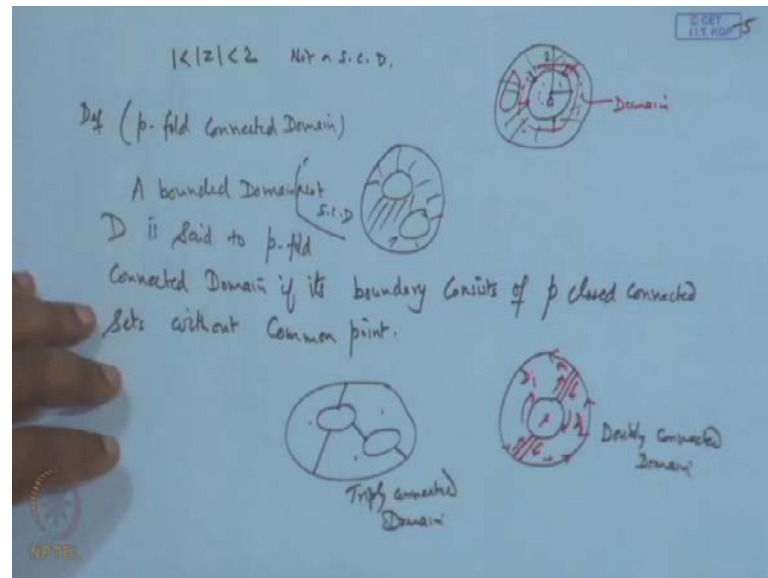 © CET
I.I.T. KGP
1<|z|<2 Not a S.C.D.
Domain
Def (p-fold Connected Domain)
A bounded Domain not
S.C.D
D is said to p-fld
Connected Domain if its boundary Consists of p closed connected
Sets without Common point.
Doubly connected
Domain
Triply connected
Domain
NPTEL